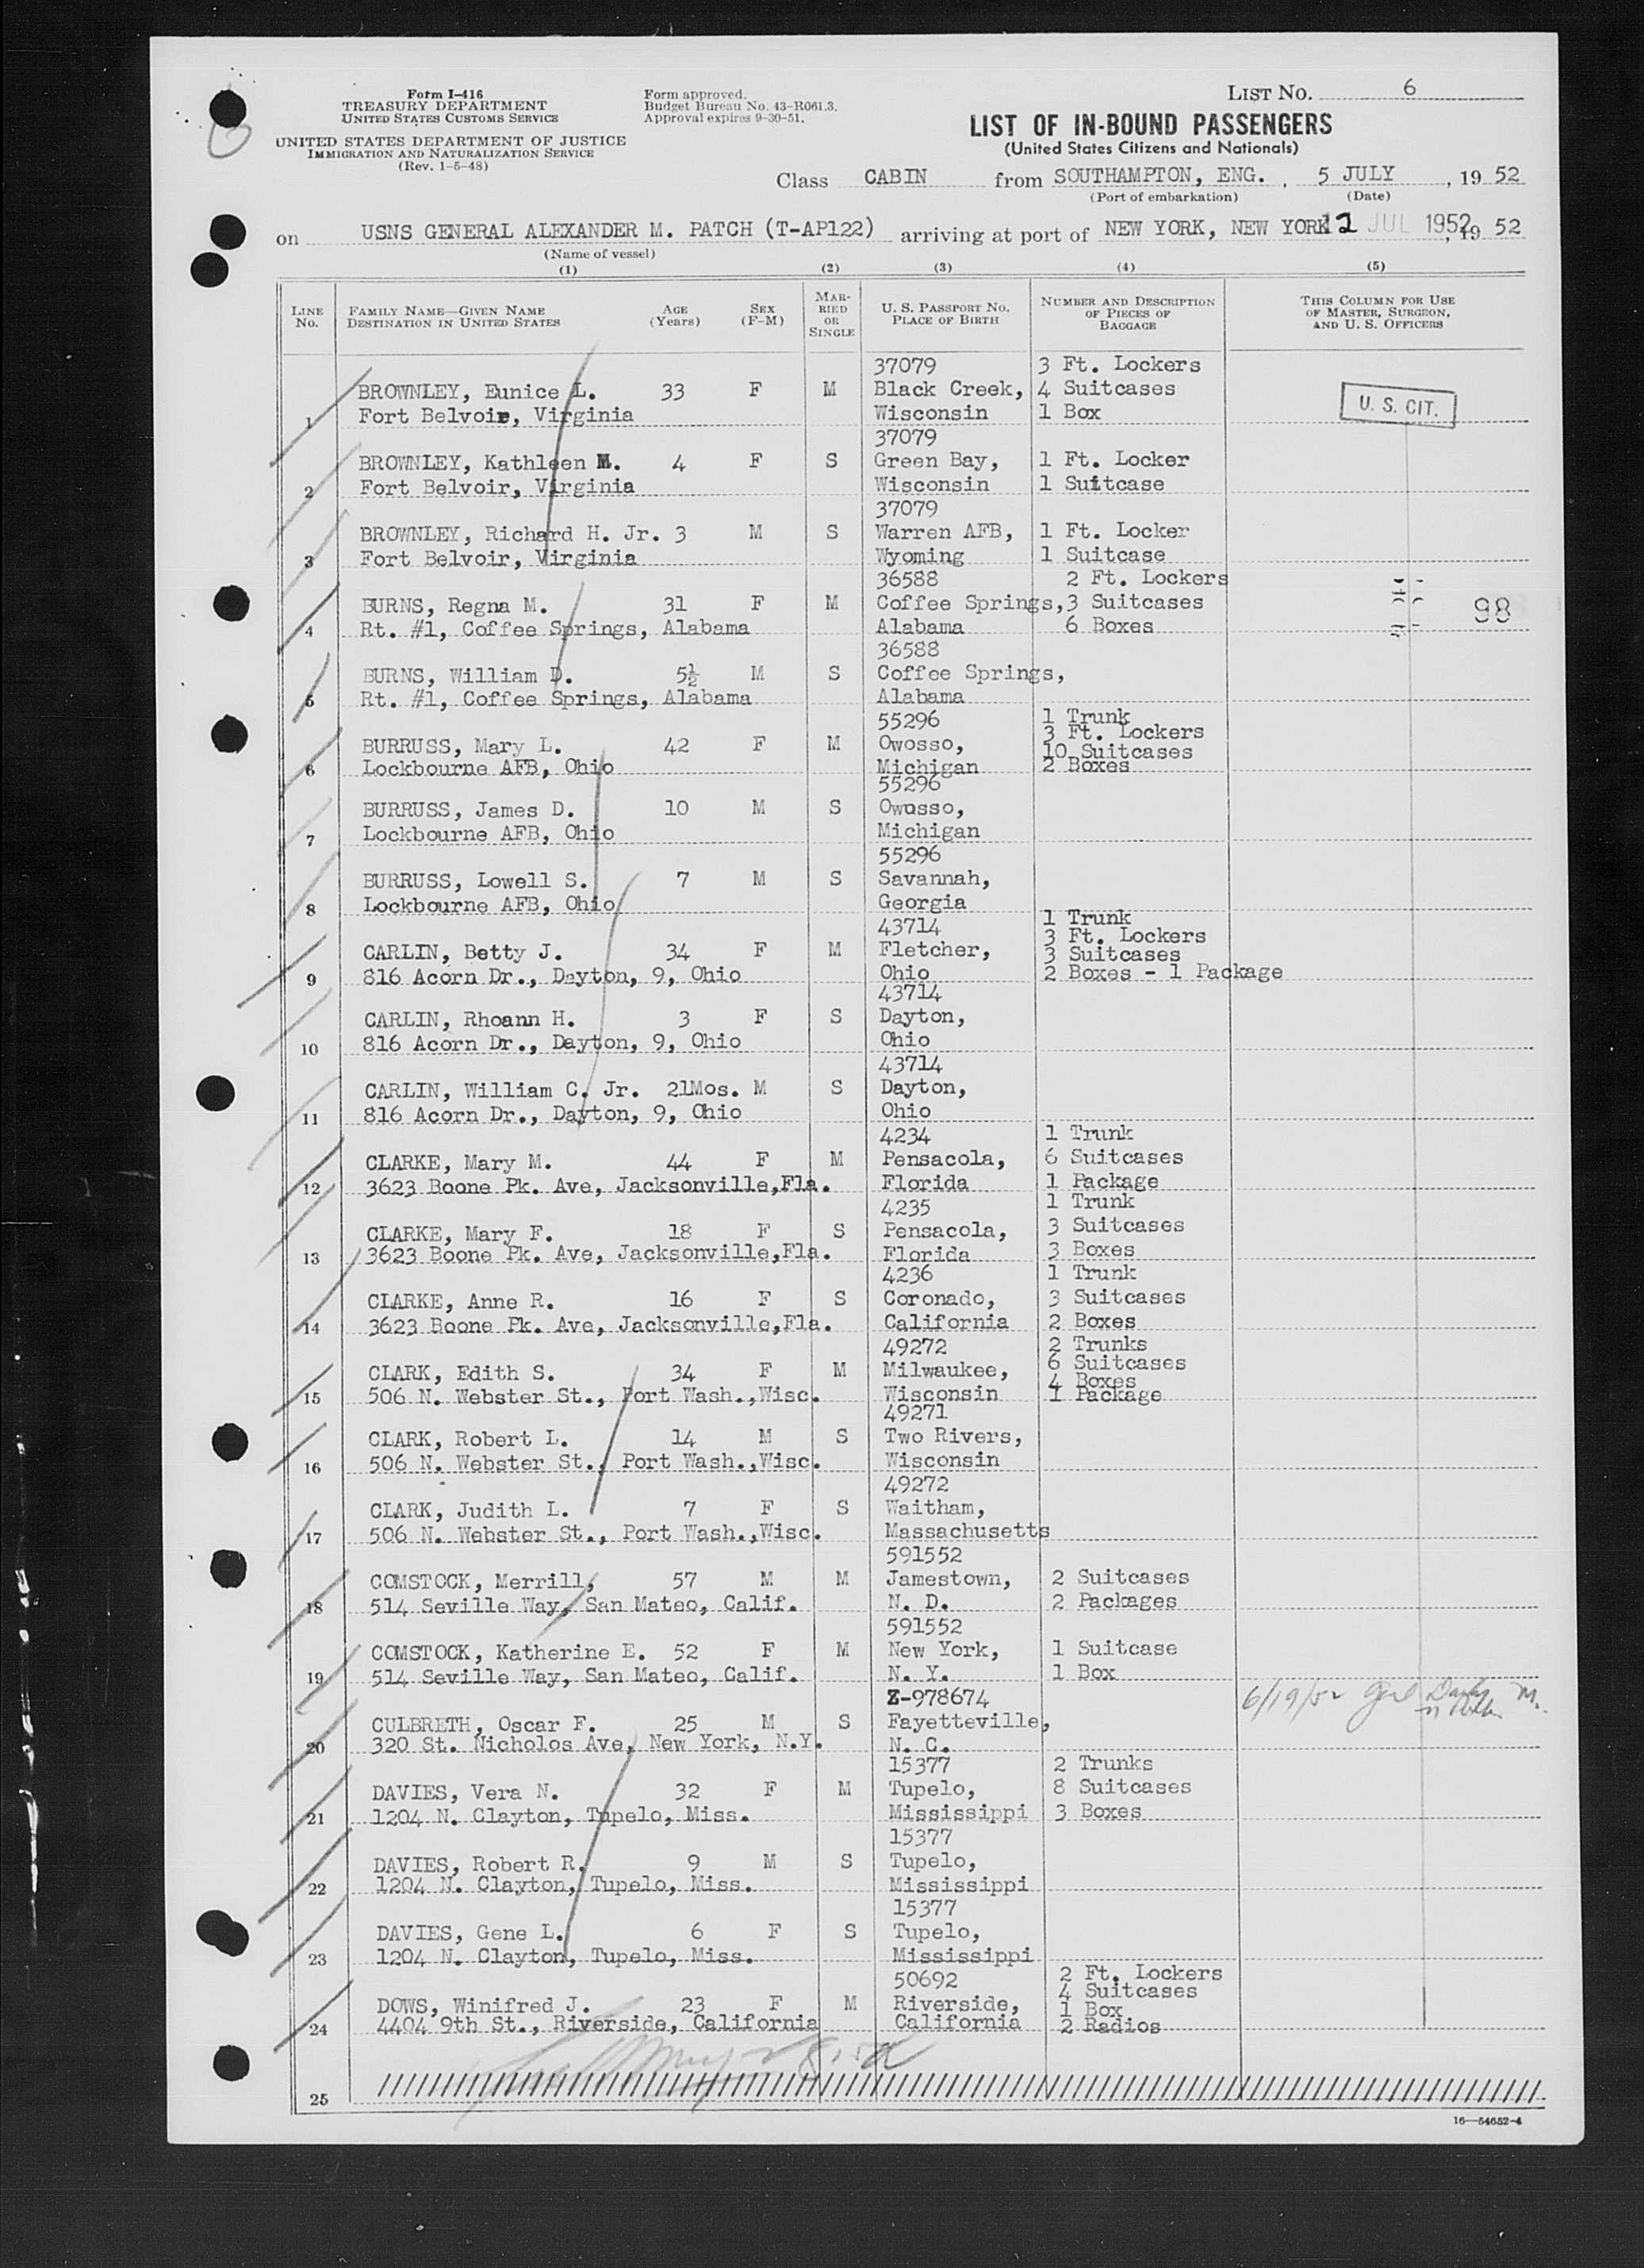 Form I-416
TREASURY DEPARTMENT
UNITED STATES CUSTOMS SERVICE
UNITED STATES DEPARTMENT OF JUSTICE
IMMIGRATION AND NATURALIZATION SERVICE
(Rev. 1-5-48)
Form approved.
Budget Bureau No. 43-R061.3.
Approval expires 9-30-51.
LIST NO. 6
LIST OF IN-BOUND PASSENGERS
(United States Citizens and Nationals)
Class CABIN from SOUTHAMPTON, ENG. , 5 JULY , 19 52
(Port of embarkation) (Date)
on USNS GENERAL ALEXANDER M. PATCH (T-AP122) arriving at port of NEW YORK, NEW YORK 12 JUL 1952, 19 52
(Name of vessel)
(1) (2) (3) (4) (5)
LINE No.
FAMILY NAME—GIVEN NAME
DESTINATION IN UNITED STATES
AGE (Years)
SEX (F-M)
MAR-RIED OR SINGLE
U. S. PASSPORT NO.
PLACE OF BIRTH
NUMBER AND DESCRIPTION OF PIECES OF BAGGAGE
THIS COLUMN FOR USE OF MASTER, SURGEON, AND U. S. OFFICERS
37079 3 Ft. Lockers
BROWNLEY, Eunice L. 33 F M Black Creek, 4 Suitcases U. S. CIT.
1 Fort Belvoir, Virginia Wisconsin 1 Box
37079
BROWNLEY, Kathleen M. 4 F S Green Bay, 1 Ft. Locker
2 Fort Belvoir, Virginia Wisconsin 1 Suitcase
37079
BROWNLEY, Richard H. Jr. 3 M S Warren AFB, 1 Ft. Locker
3 Fort Belvoir, Virginia Wyoming 1 Suitcase
36588 2 Ft. Lockers
BURNS, Regna M. 31 F M Coffee Springs, 3 Suitcases 98
4 Rt. #1, Coffee Springs, Alabama Alabama 6 Boxes
36588
BURNS, William D. 5½ M S Coffee Springs,
5 Rt. #1, Coffee Springs, Alabama Alabama
55296 1 Trunk
3 Ft. Lockers
BURRUSS, Mary L. 42 F M Owosso, 10 Suitcases
6 Lockbourne AFB, Ohio Michigan 2 Boxes
55296
BURRUSS, James D. 10 M S Owosso,
7 Lockbourne AFB, Ohio Michigan
55296
BURRUSS, Lowell S. 7 M S Savannah,
8 Lockbourne AFB, Ohio Georgia
43714 1 Trunk
3 Ft. Lockers
CARLIN, Betty J. 34 F M Fletcher, 3 Suitcases
9 816 Acorn Dr., Dayton, 9, Ohio Ohio 2 Boxes - 1 Package
43714
CARLIN, Rhoann H. 3 F S Dayton,
10 816 Acorn Dr., Dayton, 9, Ohio Ohio
43714
CARLIN, William C. Jr. 21Mos. M S Dayton,
11 816 Acorn Dr., Dayton, 9, Ohio Ohio
4234 1 Trunk
CLARKE, Mary M. 44 F M Pensacola, 6 Suitcases
12 3623 Boone Pk. Ave, Jacksonville,Fla. Florida 1 Package
4235 1 Trunk
CLARKE, Mary F. 18 F S Pensacola, 3 Suitcases
13 3623 Boone Pk. Ave, Jacksonville,Fla. Florida 3 Boxes
4236 1 Trunk
CLARKE, Anne R. 16 F S Coronado, 3 Suitcases
14 3623 Boone Pk. Ave, Jacksonville,Fla. California 2 Boxes
49272 2 Trunks
6 Suitcases
CLARK, Edith S. 34 F M Milwaukee, 4 Boxes
15 506 N. Webster St., Port Wash.,Wisc. Wisconsin 1 Package
49271
CLARK, Robert L. 14 M S Two Rivers,
16 506 N. Webster St., Port Wash.,Wisc. Wisconsin
49272
CLARK, Judith L. 7 F S Waitham,
17 506 N. Webster St., Port Wash.,Wisc. Massachusetts
591552
COMSTOCK, Merrill, 57 M M Jamestown, 2 Suitcases
18 514 Seville Way, San Mateo, Calif. N. D. 2 Packages
591552
COMSTOCK, Katherine E. 52 F M New York, 1 Suitcase
19 514 Seville Way, San Mateo, Calif. N. Y. 1 Box
Z-978674 6/19/52
CULBRETH, Oscar F. 25 M S Fayetteville,
20 320 St. Nicholos Ave, New York, N.Y. N. C.
15377 2 Trunks
DAVIES, Vera N. 32 F M Tupelo, 8 Suitcases
21 1204 N. Clayton, Tupelo, Miss. Mississippi 3 Boxes
15377
DAVIES, Robert R. 9 M S Tupelo,
22 1204 N. Clayton, Tupelo, Miss. Mississippi
15377
DAVIES, Gene L. 6 F S Tupelo,
23 1204 N. Clayton, Tupelo, Miss. Mississippi
50692 2 Ft. Lockers
4 Suitcases
DOWS, Winifred J. 23 F M Riverside, 1 Box
24 4404 9th St., Riverside, California California 2 Radios
25
16—54652-4